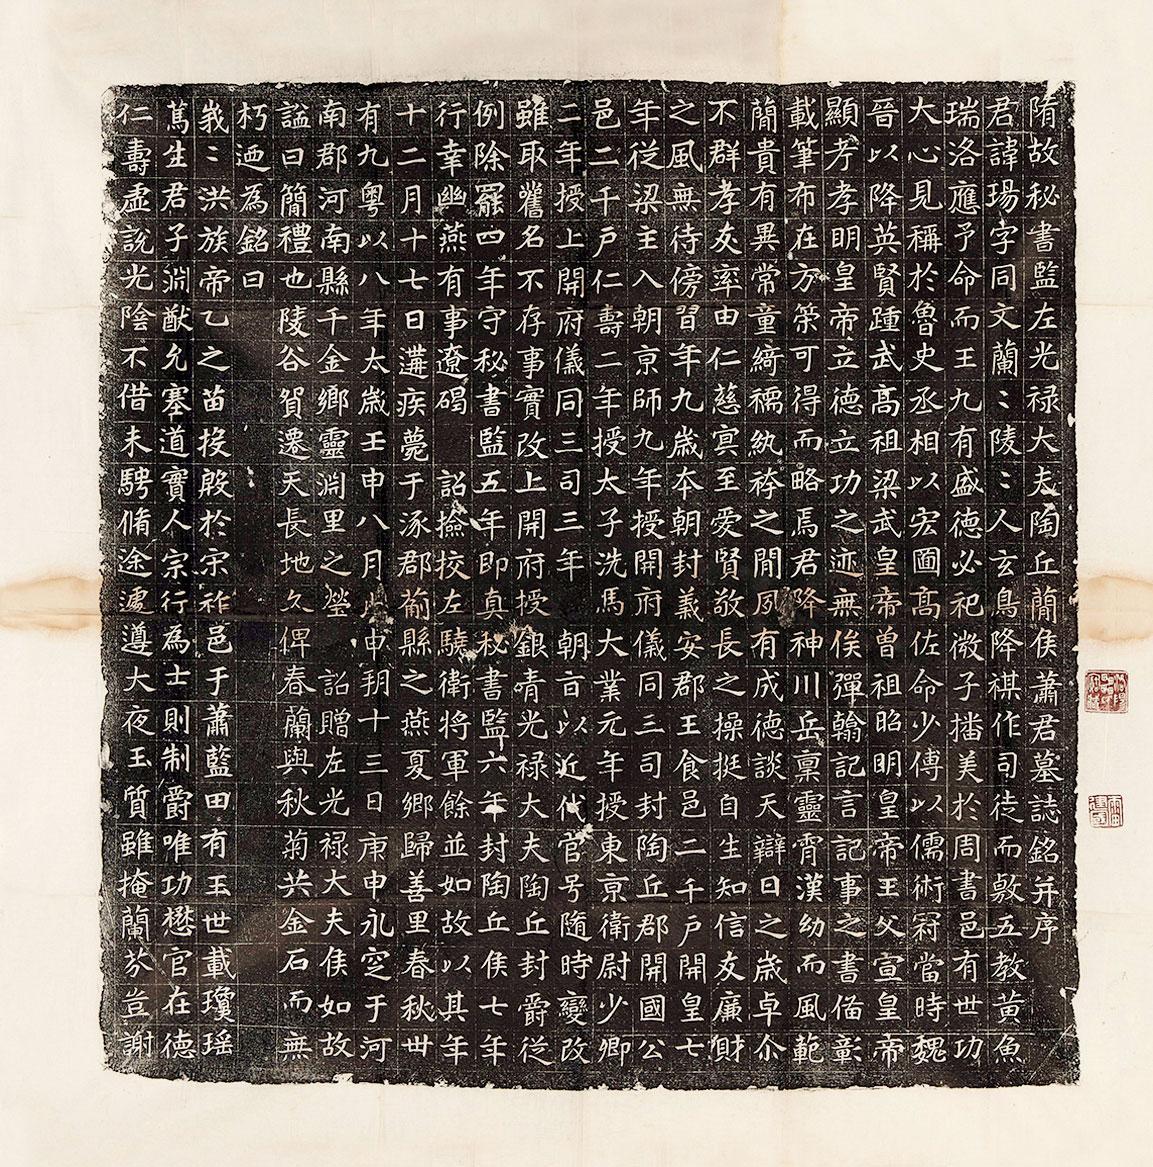 隋故秘書監左光禄大夫陶丘簡侯蕭君墓誌銘并序
君諱瑒字同文蘭〻陵〻人玄鳥降祺作司徒而敷五教黄魚
瑞洛應予命而王九有盛德必祀微子播美於周書邑有世功
大心見稱於魯史丞相以宏圖髙佐命少傅以儒術冠當時魏
晉以降英賢踵武髙祖梁武皇帝曾祖昭明皇帝王父宣皇帝
顯考孝明皇帝立德立功之迹無俟彈翰記言記事之書備彰
載筆布在方策可得而略焉君降神川岳禀靈霄漢幼而風範
簡貴有異常童綺襦紈袴之間夙有成德談天辯日之歲卓尒
不群孝友率由仁慈㝠至愛賢敬長之操挺自生知信友廉財
之風無待傍習年九歲夲朝封義安郡王食邑二千戸開皇七
年從梁主入朝京師九年授開府儀同三司封陶丘郡開國公
邑二千戸仁壽二年授太子洗馬大業元年授東京衛尉少卿
二年授上開府儀同三司三年　朝旨以近代官号隨時變改
雖取舊名不存事實改上開府授銀青光禄大夫陶丘封爵從
例除罷四年守秘書監五年即真秘書監六年封陶丘侯七年
行幸幽燕有事遼碣　詔撿挍左驍衛將軍餘並如故以其年
十二月十七日遘疾薨于涿郡薊縣之燕夏鄉歸善里春秋卅
有九粤以八年太歲壬申八月戊申朔十三日庚申永窆于河
南郡河南縣千金鄉靈淵里之塋　詔贈左光禄大夫侯如故
謚曰簡禮也陵谷貿遷天長地久俾春蘭與秋菊共金石而無
朽迺為銘曰
峩〻洪族帝乙之苗授殷於宋祚邑于蕭藍田有玉世載瓊瑶
篤生君子淵猷允塞道實人宗行為士則制爵唯功懋官在德
仁壽虛說光陰不借未騁脩途遽遵大夜玉質雖掩蘭芬豈謝